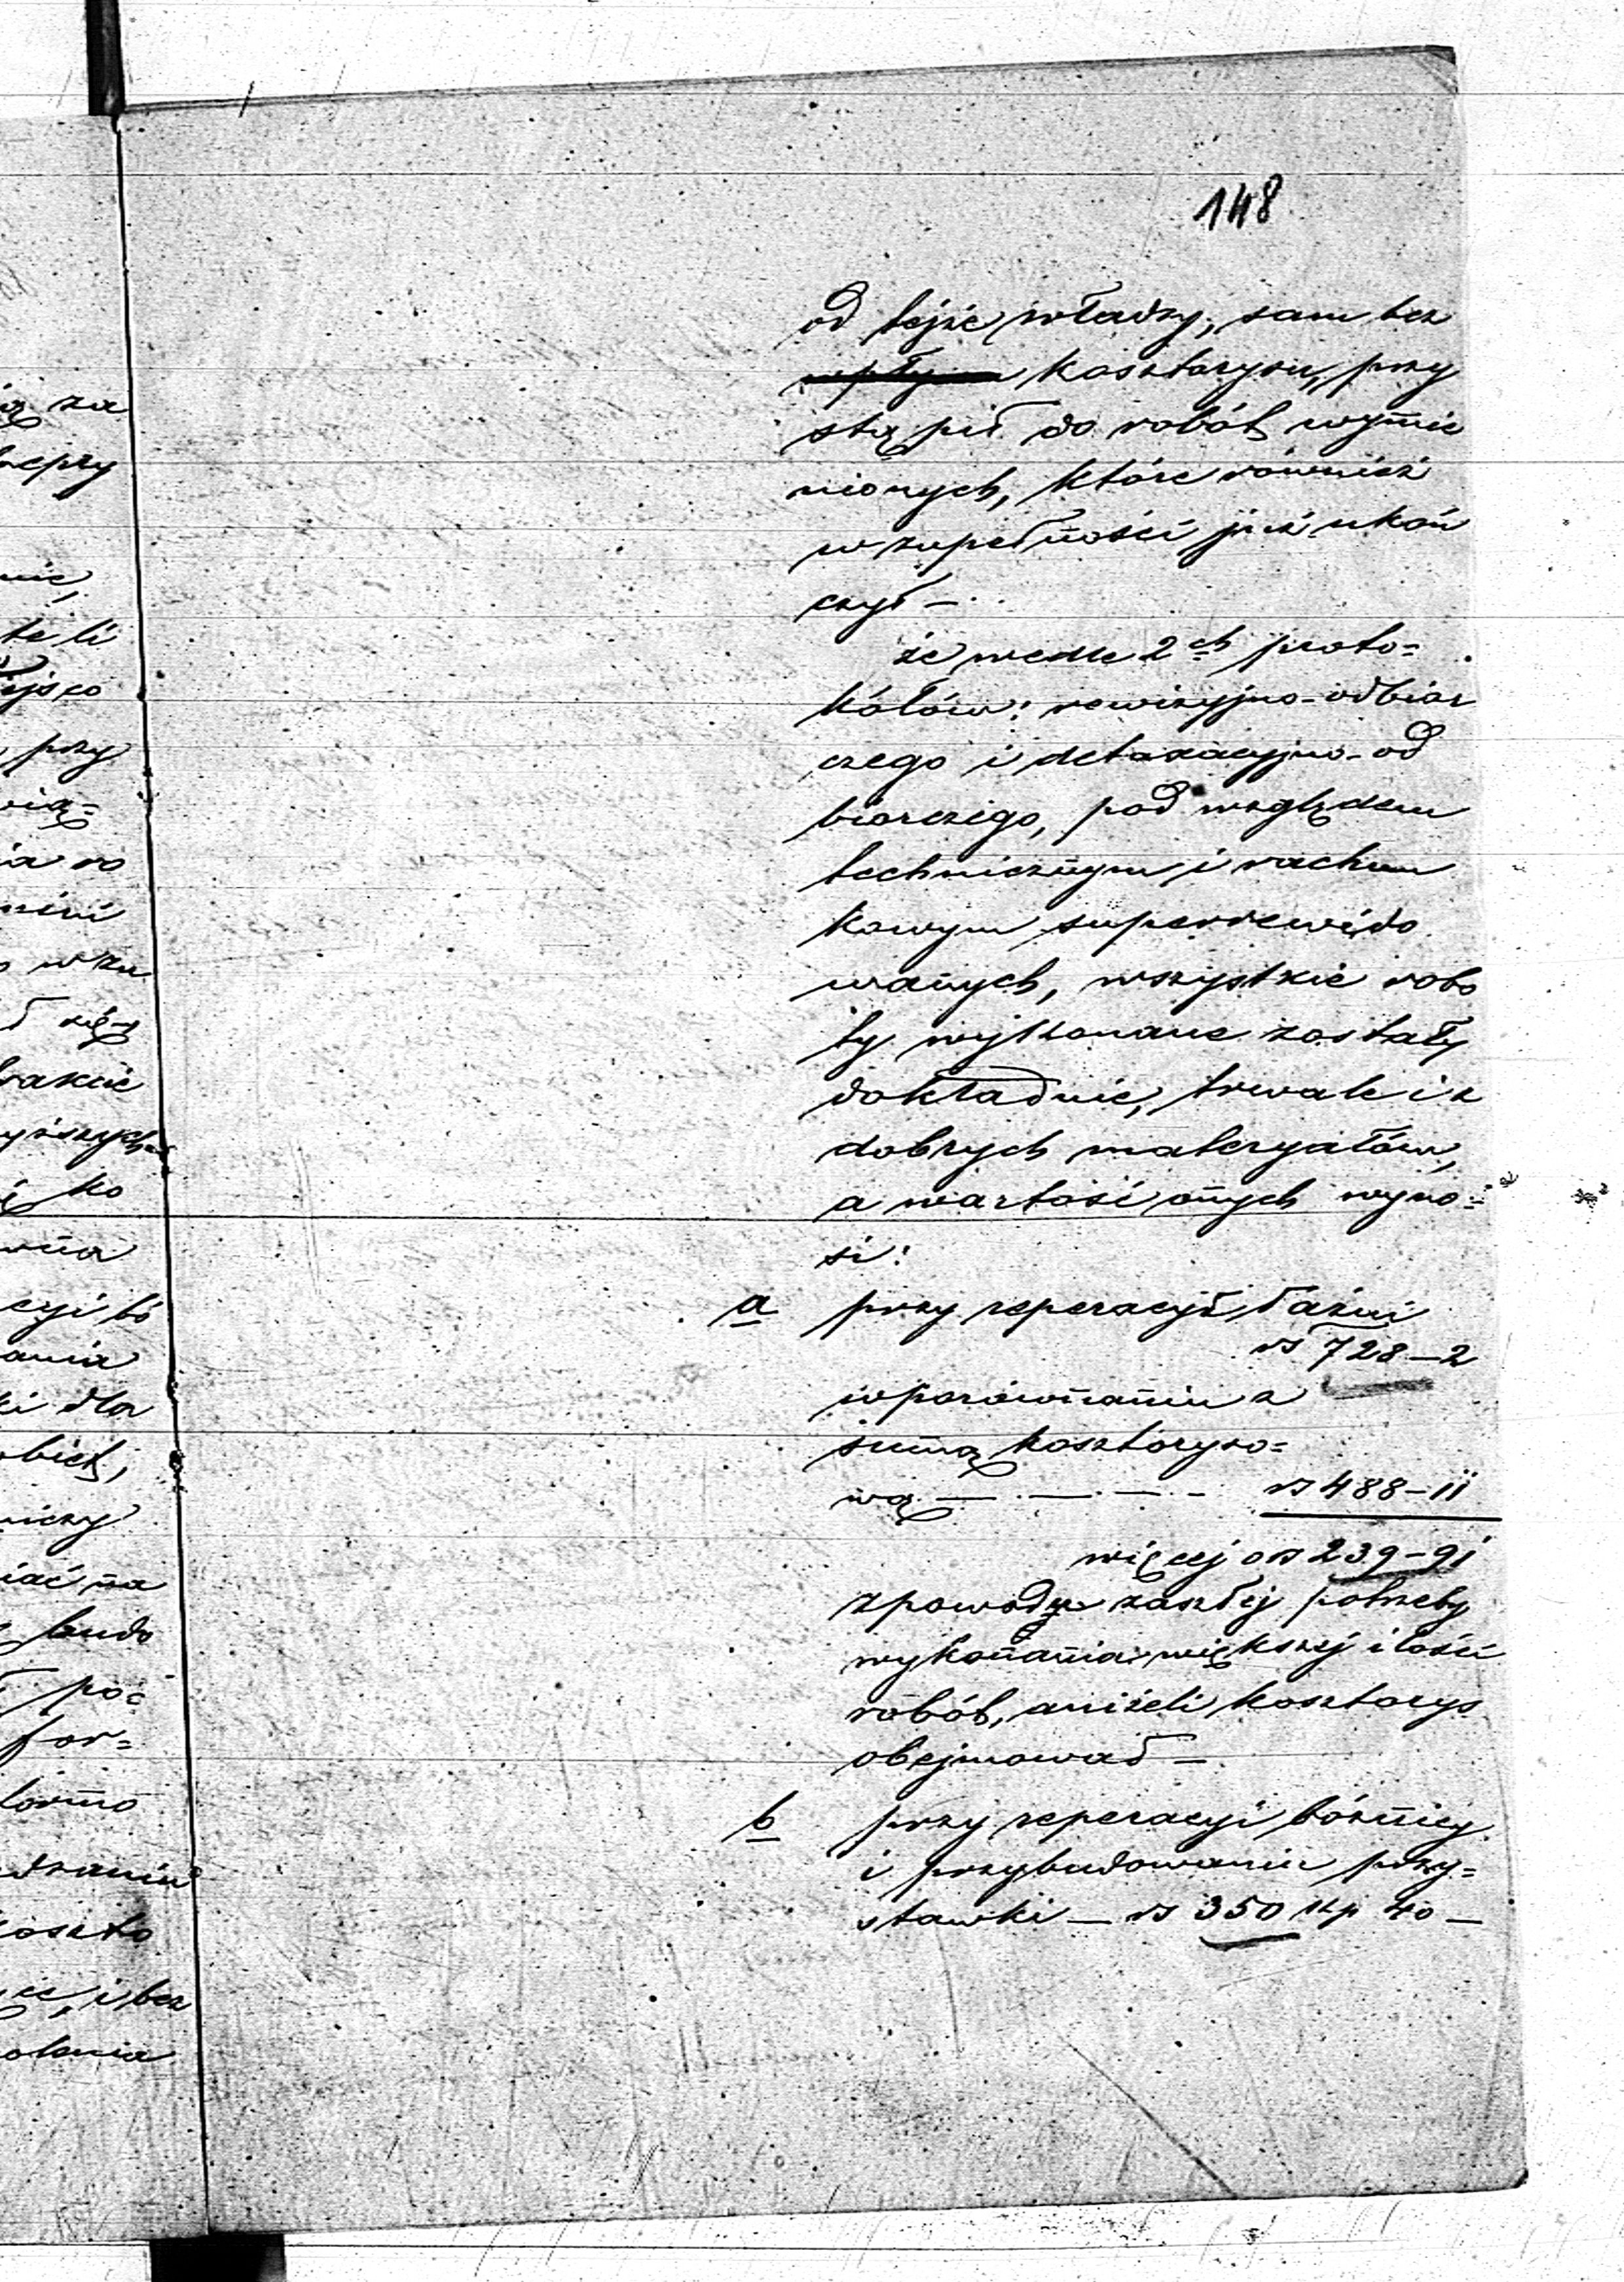 148
od tejże władzy, sam bez
kosztorysu, przy
stąpił do robót wymie
nionych, które również
w zupełności już ukoń
czył —
że wedle 2ch proto=
kółów: rewizyjno-odbior
czego i detaxacyjno-od
biorczego, pod względem
technicznym i rachun
kowym superrewido
wanych, wszystkie robo
ty wykonane zostały
dokładnie, trwale i z
dobrych materyałów,
a wartość onych wyno=
si:
a przy reperacyi łaźni
rs 728—2
w porównaniu z
sumą kosztoryso=
wą — — — — rs 488—11
więcej o rs 239—91
z powodu zaszłej potrzeby
wykonania większej ilości
robót, aniżeli kosztorys
obejmował —
b przy reperacyi bóżnicy
i przybudowaniu przy=
stawki — rs 350 kp 40 —
ą za
nie,
przy
wią=
ia ro
w zu
i ko
cyi bó
ania
ki dla
iać na
budo
po=
for=
koszto
i bez